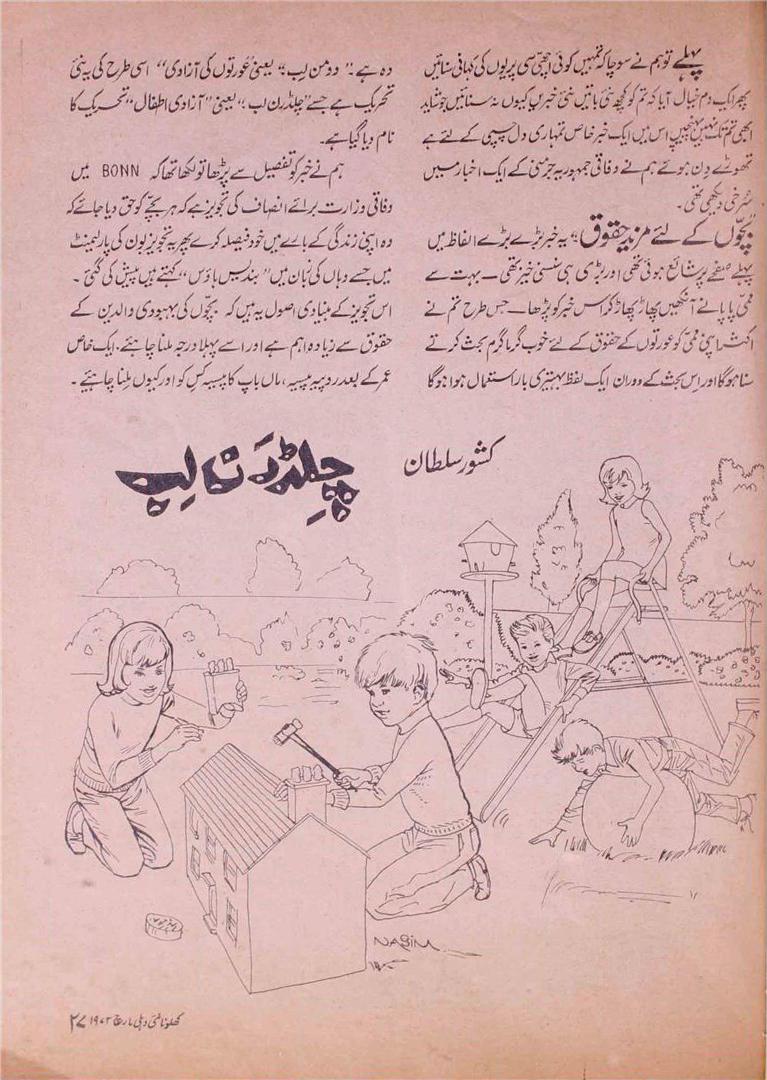 پہلے تو ہم نے سوچا کہ تمہیں کوئی اچھی سی پریوں کی کہانی سنائیں
پھر ایک دم خیال آیا کہ تم کو کچھ نئی باتیں نئی خبریں کیوں نہ سنائیں جو شاید
ابھی تم تک نہیں پہنچیں۔ اس میں ایک خبر خاص تمہاری دل چسپی کے لئے ہے
تھوڑے دن ہوئے ہم نے وفاقی جمہوریہ جرمنی کے ایک اخبار میں
سُرخی دیکھی تھی۔
"بچّوں کے لئے مزید حقوق" یہ خبر بڑے بڑے الفاظ میں
پہلے صفحے پر شائع ہوئی تھی اور بڑی ہی سنسنی خیز تھی۔ بہت سے
ممّی پاپا نے آنکھیں پھاڑ پھاڑ کر اس خبر کو پڑھا۔ جس طرح تم نے
اکثر اپنی ممّی کو عورتوں کے حقوق کے لئے خوب گرما گرم بحث کرتے
سنا ہوگا اور اِس بحث کے دوران ایک لفظ بہتیری بار استعمال ہوا ہوگا
وہ ہے۔ "وومن لِب"، یعنی "عورتوں کی آزادی" اسی طرح کی یہ نئی
تحریک ہے جسے "چلڈرن لب"، یعنی "آزادی اطفال"، تحریک کا
نام دیا گیا ہے۔
ہم نے خبر کو تفصیل سے پڑھا تو لکھا تھا کہ BONN میں
وفاقی وزارت برائے انصاف کی تجویز ہے کہ ہر بچّے کو حق دیا جائے کہ
وہ اپنی زندگی کے بارے میں خود فیصلہ کرے پھر یہ تجویز بون کی پارلیمنٹ
میں جسے وہاں کی زبان میں "بنڈیس ہاؤس" کہتے ہیں پیش کی گئی۔
اس تجویز کے بنیادی اصول یہ ہیں کہ بچّوں کی بہبودی والدین کے
حقوق سے زیادہ اہم ہے اور اسے پہلا درجہ ملنا چاہئے۔ ایک خاص
عمر کے بعد روپیہ پیسہ، ماں باپ کا پیسہ کِس کو اور کیوں مِلنا چاہئے۔
کشور سلطان
چِلڈرَن لِب
NAGIM
کھلونا نئی دہلی مارچ ۱۹۷۳ ۲۷